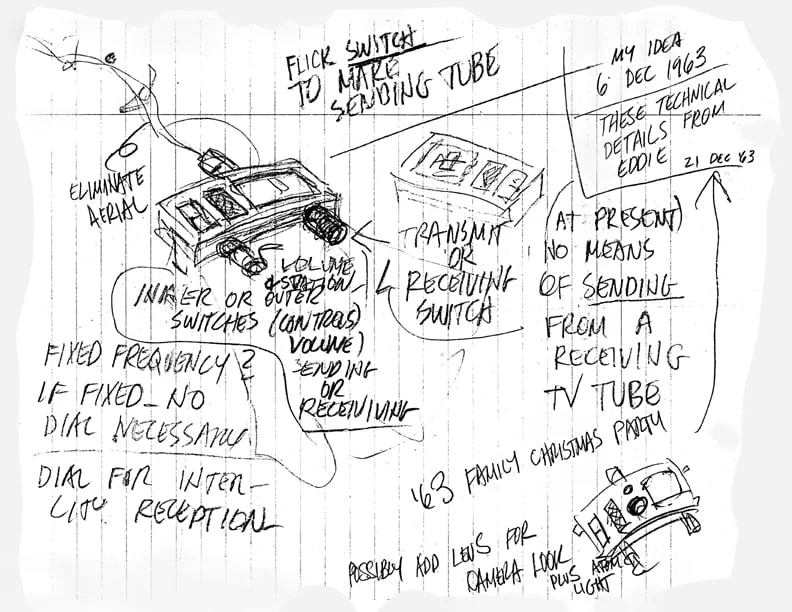 FLICK SWITCH
TO MAKE
SENDING TUBE
MY IDEA
6 DEC 1963
THESE TECHNICAL
DETAILS FROM
EDDIE 21 DEC '63
ELIMINATE
AERIAL
TRANSMIT
OR
RECEIVING
SWITCH
(AT PRESENT)
NO MEANS
OF SENDING
FROM A
RECEIVING
TV TUBE
VOLUME
& STATION
INNER OR OUTER
SWITCHES (CONTROLS)
VOLUME)
SENDING
OR
RECEIVIVING
FIXED FREQUENCY?
IF FIXED_NO
DIAL NECESSARY
DIAL FOR INTER-
CITY RECEPTION
'63 FAMILY CHRISTMAS PARTY
POSSIBLY ADD LENS FOR
CAMERA LOOK
PLUS ATOMIC
LIGHT